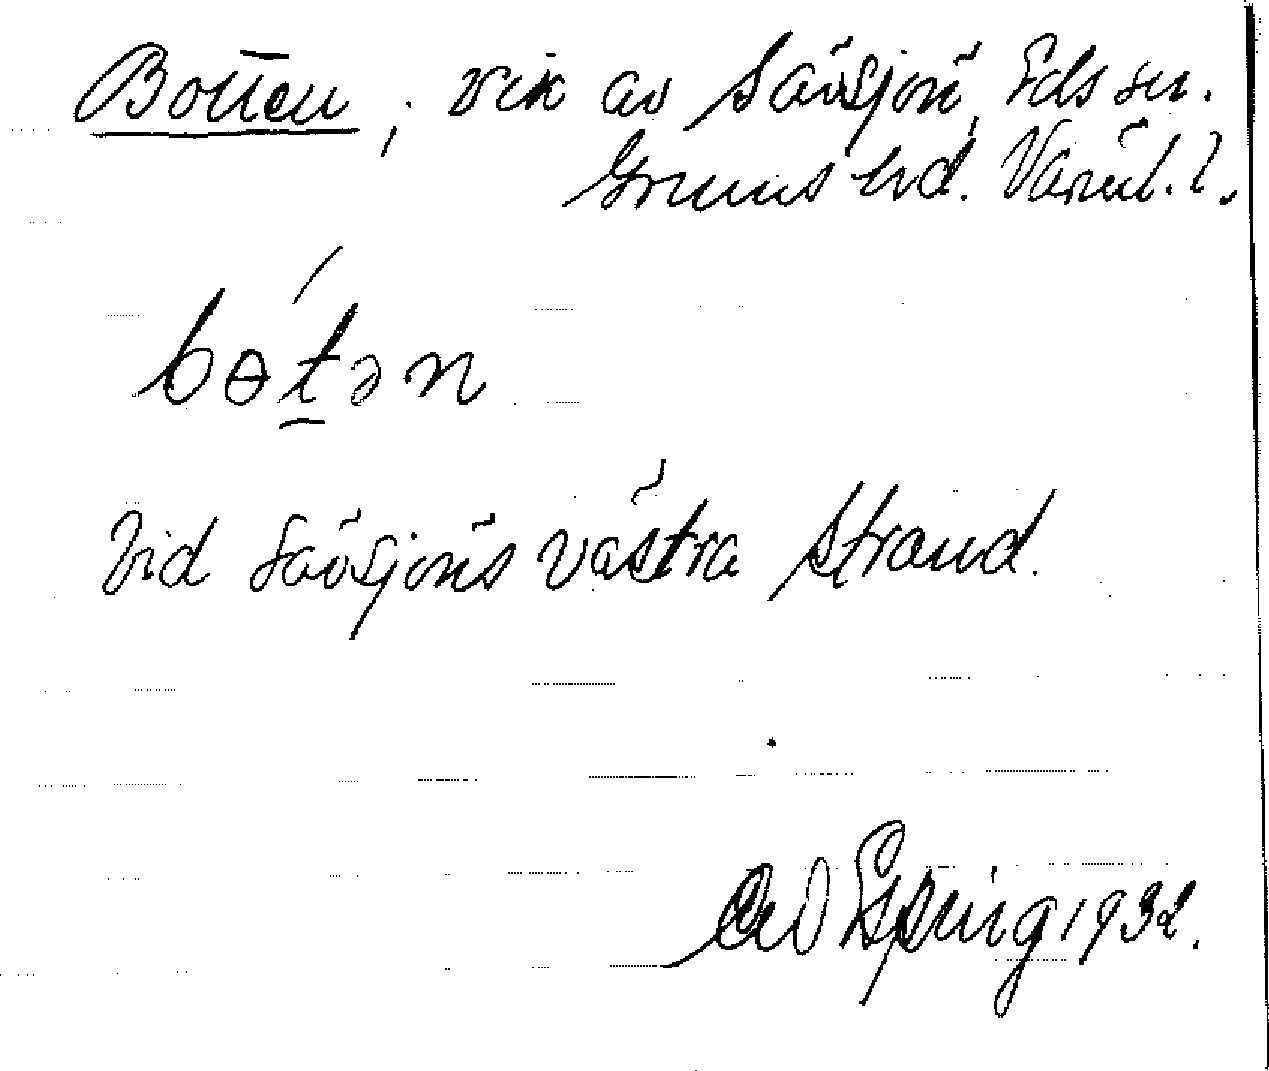 Botten, vik av Savsjön, Eds sn.
Grums hd. Värml. l.
bɵt̠ən
Vid Savsjöns västra strand.
Spring 1932.